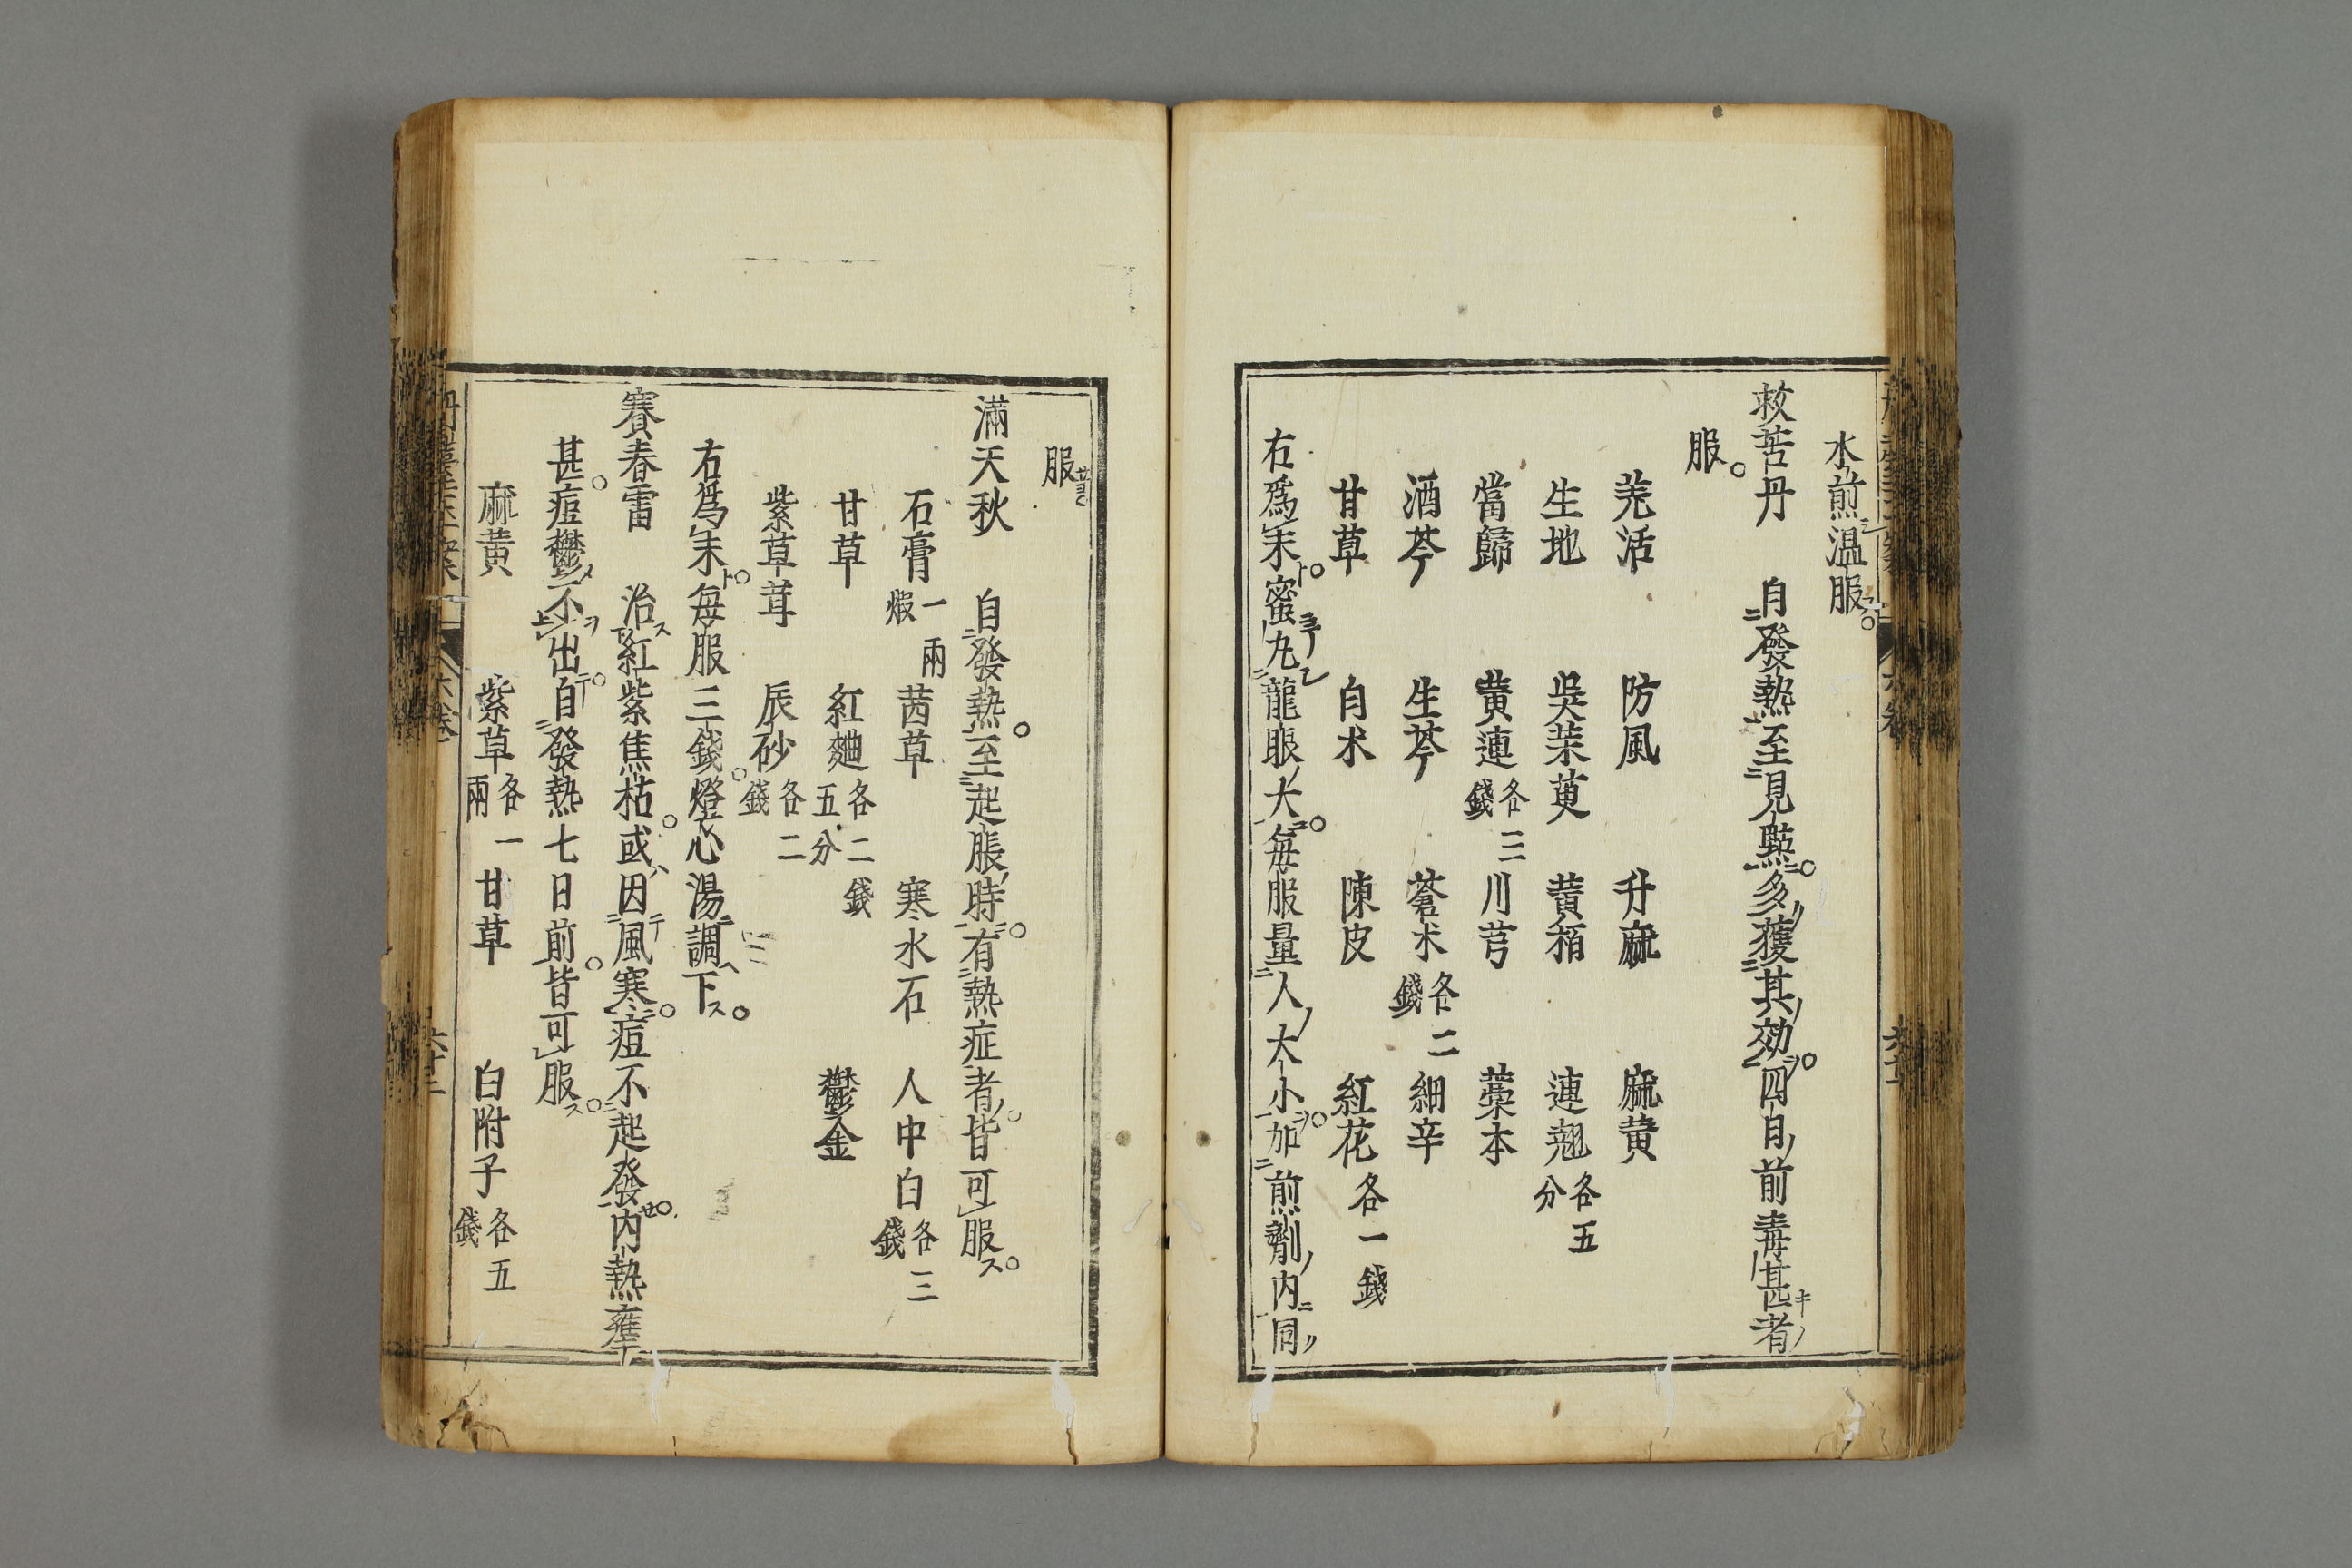 水煎温服
救苦丹 自發熱至見㸃多獲其効四日前毒甚者
服
羌活 防風 升麻 麻黄
生地 吳茱萸 黄栢 連翹各五分
當歸 黄連各三錢 川芎 藁本
酒芩 生芩 蒼朮各二錢 細辛
甘草 白朮 陳皮 紅花各一錢
右爲末蜜丸龍眼大每服量人大小加煎劑内同
服
滿天秋 自發熱至起脹時有熱症者皆可服
石膏一兩煅 茜草 寒水石 人中白各三錢
甘草 紅麯各二錢五分 鬱金
紫草茸 辰砂各二錢
右爲末每服三錢燈心湯調下
賽春雷 治紅紫焦枯或因風寒痘不起發内熱壅
甚痘鬱不出自發熱七日前皆可服
麻黄 紫草各一兩 甘草 白附子各五錢